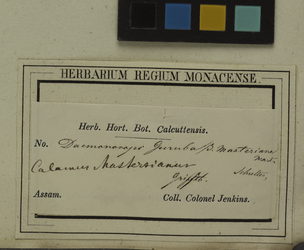 HERBARIUM REGIUM MONACENSE.
Herb. Hort. Bot. Calcuttensis.
No. Daemonorops Guruba β. Masteriana
Mart.
Calamus Mastersianus
Griffith.
Assam. Coll. Colonel Jenkins.